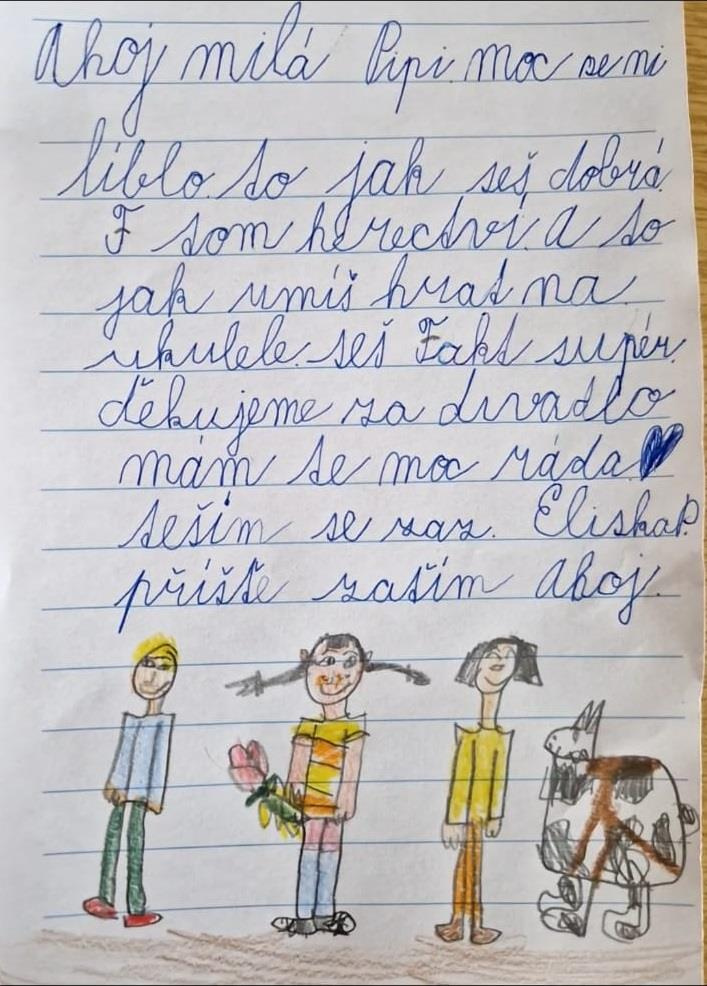 Ahoj milá Pipi moc se mi
líblo to jak seš dobrá
F tom herectví. A to
jak umíš hrat na
ukulele. seš Fakt supér
děkujeme za divadlo
mám tě moc ráda
těším se zaz. Eliska P.
příště zatím Ahoj.